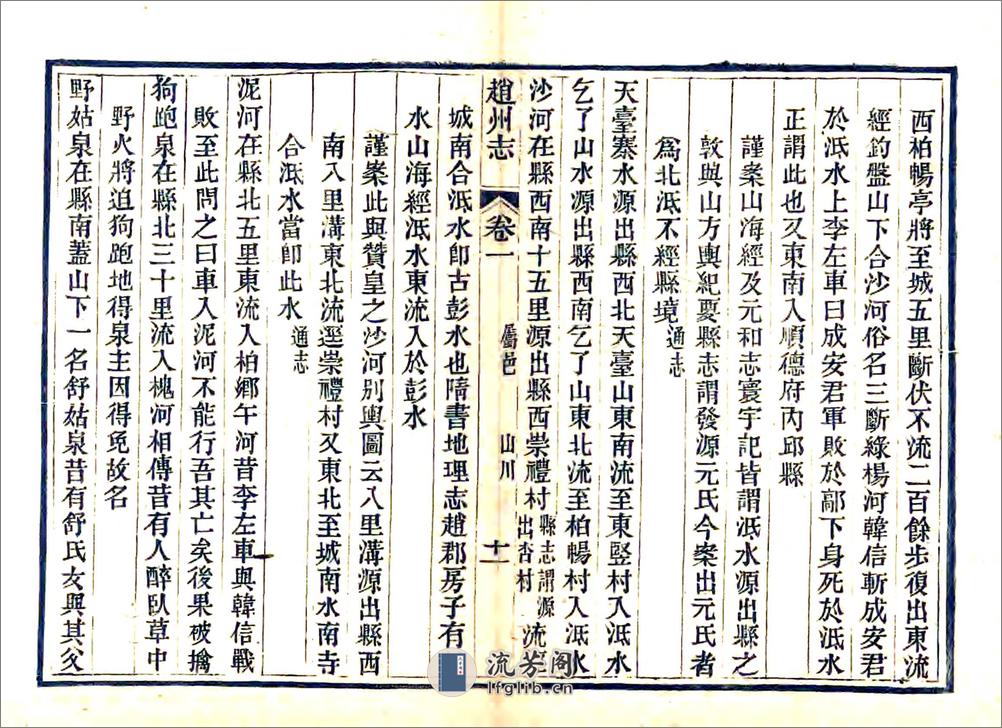 西柏暢亭將至城五里斷伏不流二百餘步復出東流
經釣盤山下合沙河俗名三斷綠楊河韓信斬成安君
於泜水上李左車曰成安君軍敗於鄗下身死於泜水
正謂此也又東南入順德府內邱縣
謹案山海經及元和志寰宇記皆謂泜水源出縣之
敦與山方輿紀要縣志謂發源元氏今案出元氏者
為北泜不經縣境通志
天臺寨水源出縣西北天臺山東南流至東豎村入泜水
乞了山水源出縣西南乞了山東北流至柏暢村入泜水
沙河在縣西南十五里源出縣西崇禮村縣志謂源出杏村流至
趙州志 卷一 屬邑 山川 十一
城南合泜水卽古彭水也隋書地理志趙郡房子有彭
水山海經泜水東流入於彭水
謹案此與贊皇之沙河別輿圖云八里溝源出縣西
南八里溝東北流逕崇禮村又東北至城南水南寺
合泜水當卽此水通志
泥河在縣北五里東流入柏鄉午河昔李左車與韓信戰
敗至此問之曰車入泥河不能行吾其亡矣後果被擒
狗跑泉在縣北三十里流入槐河相傳昔有人醉臥草中
野火將迫狗跑地得泉主因得免故名
野姑泉在縣南蓋山下一名舒姑泉昔有舒氏女與其父
流芳阁
lfglib.cn